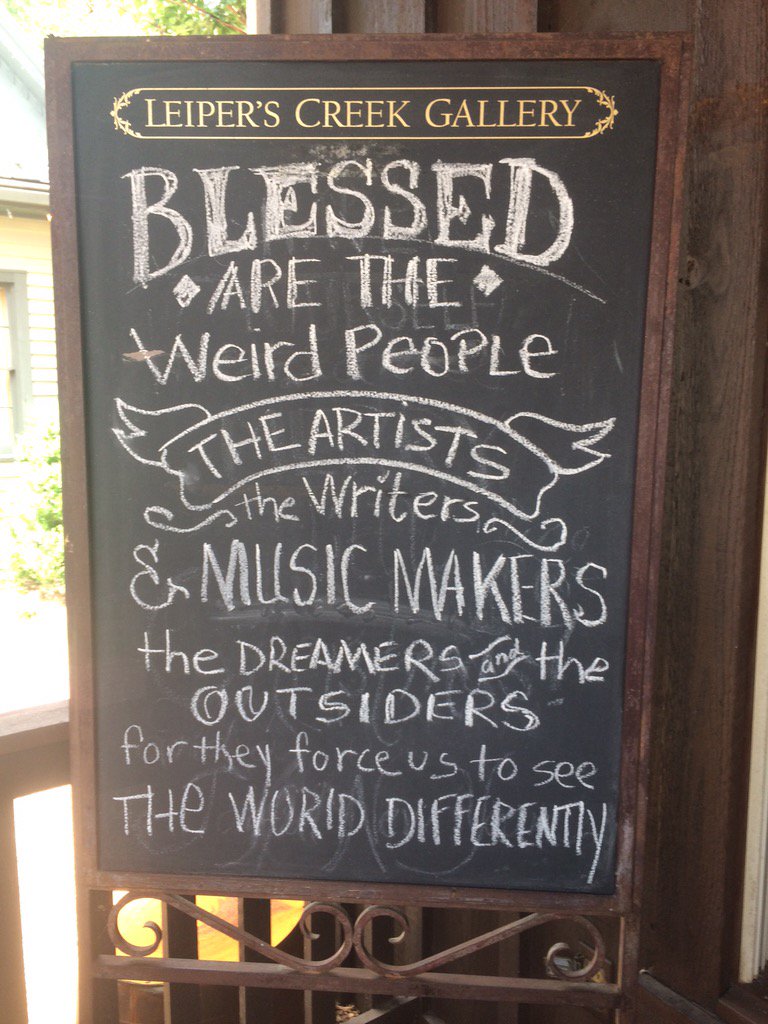 LEIPER'S CREEK GALLERY
BLESSED
ARE THE
Weird People
THE ARTISTS
the Writers
& MUSIC MAKERS
the DREAMERS and the
OUTSIDERS
for they force us to see
THe WORlD DIFFERENTlY